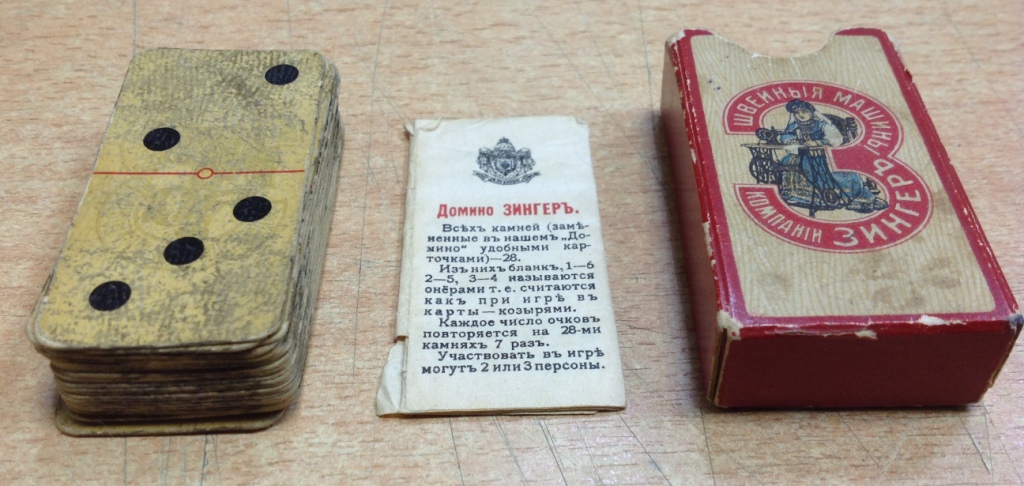 Домино ЗИНГЕРЪ.
Всѣхъ камней (замѣ-
ненные въ нашемъ „До-
мино“ удобными кар-
точками)—28.
Изъ нихъ бланкъ, 1—6
2—5, 3—4 называются
онёрами т. е. считаются
какъ при игрѣ въ
карты — козырями.
Каждое число очковъ
повторяется на 28-ми
камняхъ 7 разъ.
Участвовать въ игрѣ
могутъ 2 или 3 персоны.
ШВЕЙНЫЯ МАШИНЫ
КОМПАНІИ ЗИНГЕРЪ